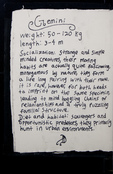 Gemini
weight: 50-120 kg
length: 3-4 m
Socialization: strange and simple
minded creatures, their mating
habits are actually quite endearing.
monogamous by nature, they form
a life long pairing with their mate.
it is rare, however, for both heads
to imprint on the same specimen,
leading to mind boggling chains of
relationships and to rarely existing
families.
Diet and habitat: scavengers and
opportunistic predators, they primarily
hunt in urban environments.